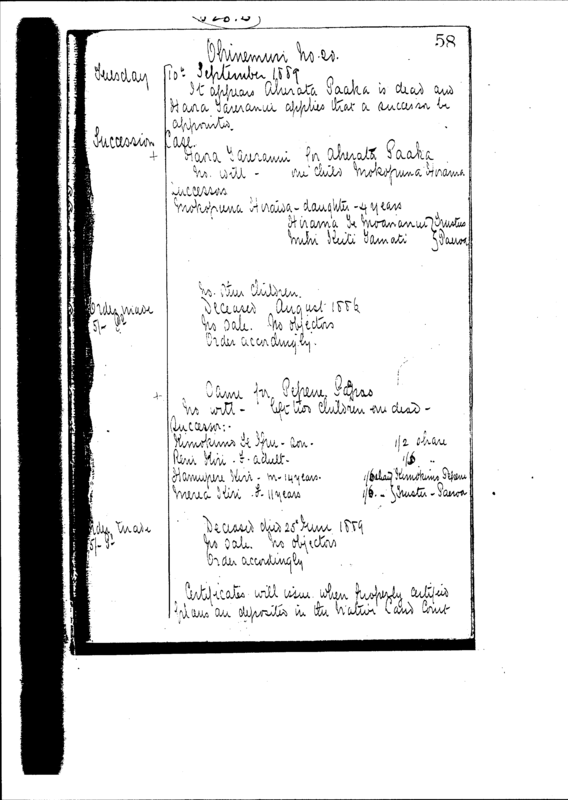 58
Ohinemuri No. 20.
Tuesday 10th September 1889
It appears Aherata Paaka is dead and
Hara applies that a successor be
appointed.
Succession Case
+ Hara for Aherata Paaka
No will - one child Mokopuna Hirama
Successor
Mokopuna - daughter - 4 years
Hirama Te Moananui } Trustees
Mihi Keiti Tamati } Paeroa
No other children.
Order made Deceased August 1886
5/- No sale. No objectors
Order accordingly.
+ Same for Pepene
No will - left two children one dead -
Successor:-
Kimokimo Te - son - 1/2 share
Reni Kiri - F - adult - 1/6 "
Hamupere Kiri - m - 14 years. 1/6 Kimokimo Pepene
Merea Kiri - F 11 years 1/6 - } Trustee - Paeroa
Order made Deceased died 25th June 1889
5/- No sale. No objectors
Order accordingly
Certificates will issue when properly certified
plans are deposited in the Native Land Court